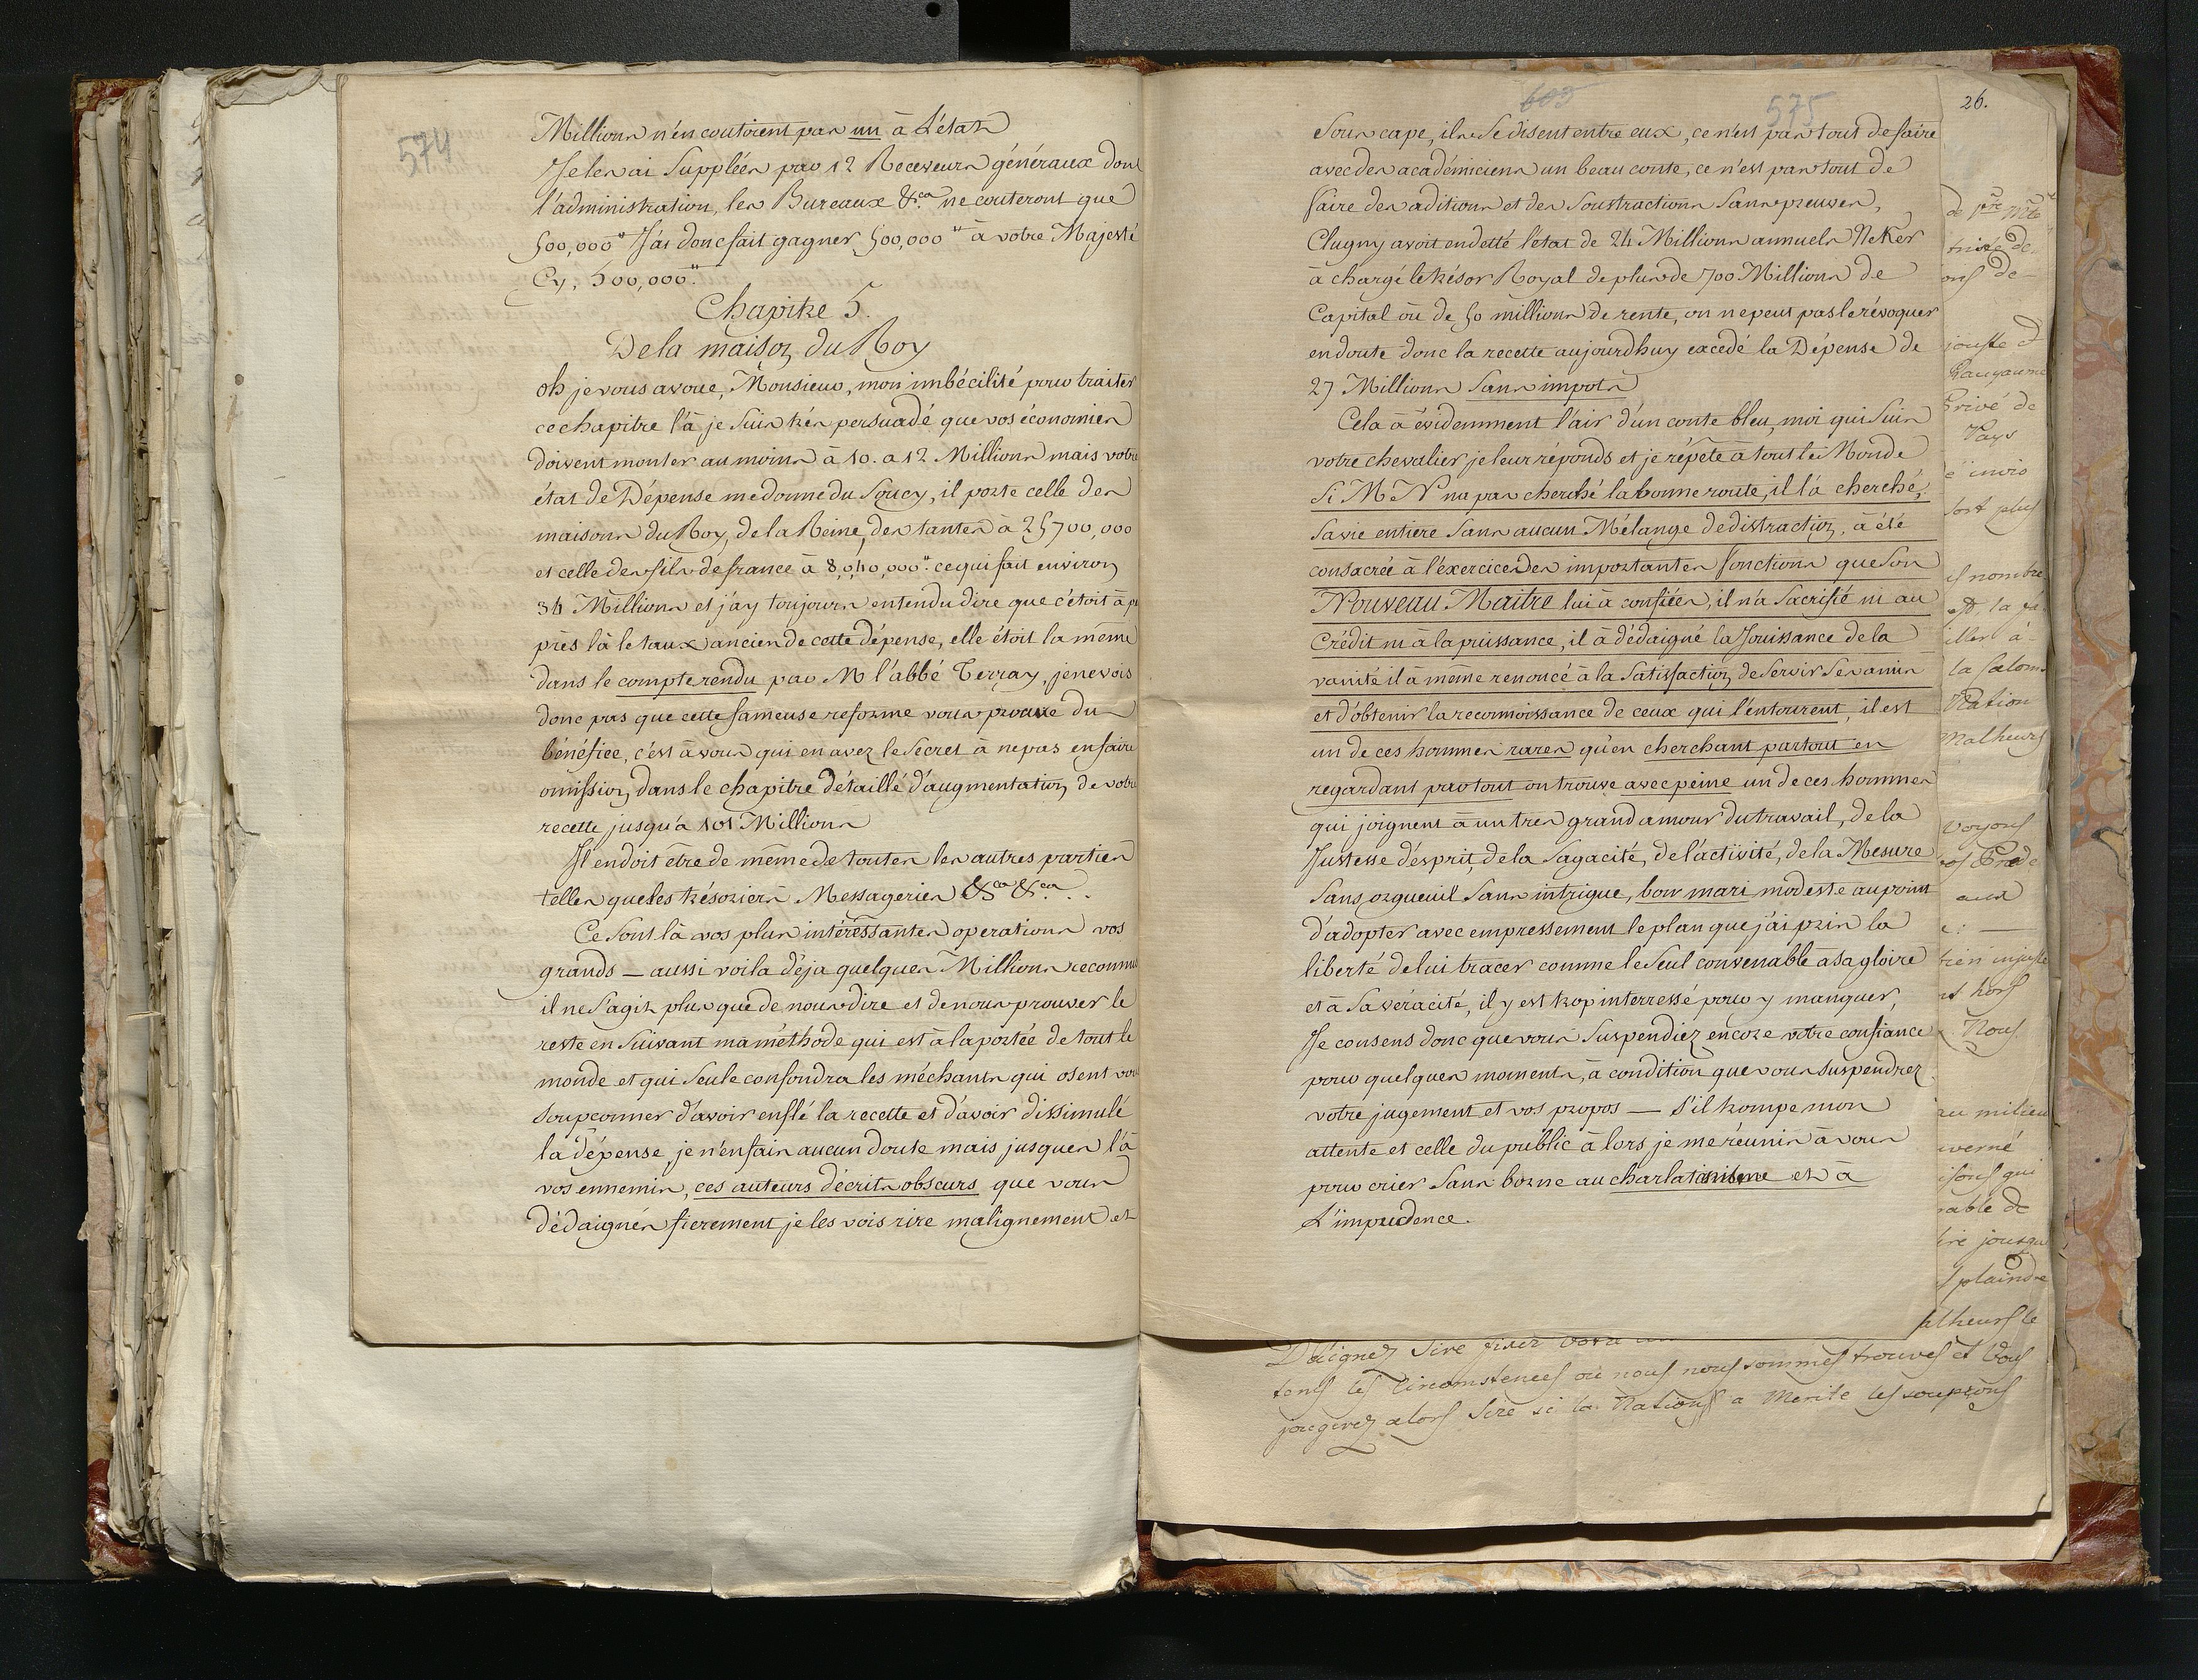 574
Millions n'en coutoient pas un à L'état
Je les ai Suppléés par 12 Receveurs généraux dont
l'administration, les Bureaux &.ca ne couteront que
500,000 j'ai donc fait gagner 500,000 à votre Majesté
Cy, 500,000.
Chapitre 5.
De la maison du Roy
oh je vous avoue, Monsieur, mon imbécilité pour traiter
ce chapitre l'à je Suis trés persuadé que vos économies
doivent monter au moins à 10. a 12 Millions mais votre
état de Dépense me donne du Soucy, il porte celle des
maisons du Roy, de la Reine, des tantes à 25700,000
et celle des fils de france à 8,040,000. ce qui fait environ
34 Millions et j'ay toujours entendu dire que c'étoit à
près là le taux ancien de cette dépense, elle étoit la même
dans le compte rendu par M l'abbé Terray, je ne vois
donc pas que cette fameuse reforme vous prouve du
bénéfice, c'est à vous qui en avez le Secret à ne pas en faire
omission dans le chapitre détaillé d'augmentation de votre
recette jusqu'à 101 Millions
Il en doit être de même de toutes les autres parties
telles que les trésoriers Messageries &ca &ca. . .
Ce Sont là vos plus intéressantes operations vos
grands — aussi voila déja quelques Millions reconnus
il ne S'agit plus que de nous dire et de nous prouver le
reste en Suivant ma méthode qui est à la portée de tout le
monde et qui Seule confondra les méchants qui osent vous
soupçonner d'avoir enflé la recette et d'avoir dissimulé
la dépense, je n'en fais aucun doute mais jusques l'à
vos ennemis, ces auteurs d'écrits obscurs que vous
dédaignés fierement je les vois rire malignement et
603
575
26.
Sous cape, ils Se disent entre eux, ce n'est pas tout de faire
avec des académiciens un beau conte, ce n'est pas tout de
faire des aditions et des Soustractions Sans preuves,
Clugny avoit endetté l'état de 24 Millions annuels Neker
à chargé le trésor Royal de plus de 700 Millions de
Capital où de 50 millions de rente, on ne peut pas le révoquer
en doute donc la recette aujourdhuy excedé la Dépense de
27 Millions Sans impots
Cela à évidemment l'air d'un conte bleu, moi qui Suis
votre chevalier je leur réponds et je répete à tout le Monde
Si M N na pas cherché la bonne route, il l'à cherché,
Sa vie entiere Sans aucun Mélange de distraction, à été
consacrée à l'éxercice des importantes fonctions que Son
Nouveau Maitre lui à confiées, il n'a Sacrifié ni au
Crédit ni à la puissance, il à dédaigné la Jouissance de la
vanité il à même renoncé à la Satisfaction de Servir Ses amis
et d'obtenir la reconnoissance de ceux qui l'entourent, il est
un de ces hommes rares qu'en cherchant partout en
regardant par tout on trouve avec peine un de ces hommes
qui joignent à un tres grand amour du travail, de la
Justesse d'esprit, de la Sagacité, de l'activité, de la Mesure
Sans orgueuil Sans intrigue, bon mari modeste au point
d'adopter avec empressement le plan que j'ai pris la
liberté de lui tracer comme le Seul convenable à sa gloire
et à Sa véracité, il y est trop interressé pour y manquer,
Je consens donc que vous Suspendiez encore votre confiance
pour quelques moments, à condition que vous suspendrez
votre jugement et vos propos — S'il trompe mon
attente et celle du public à lors je me réunis à vous
pour crier Sans borne au charlatanisme et à
L'impudence.
Pays
sort plus
nombre
est la
la
Nation
Malheurs
voyons
injuste
hors
Nous
au milieu
qui
de
plaindre
le
Daignez Sire fixer votre
tens les Circomstences où nous nous sommes trouvés et Vous
jugerez alors Sire si la Nation a Merité les soupçons